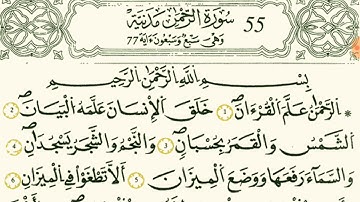 سُورَةُ الرَّحْمَٰنِ مَدَنِيَّة 55
وَهِيَ سَبْعٌ وَسَبْعُونَ ءَايَة 77
بِسْمِ اللَّهِ الرَّحْمَٰنِ الرَّحِيمِ
* الرَّحْمَٰنُ عَلَّمَ الْقُرْءَانَ 1 خَلَقَ الْإِنسَانَ عَلَّمَهُ الْبَيَانَ 2
الشَّمْسُ وَالْقَمَرُ بِحُسْبَانٍ 3 وَالنَّجْمُ وَالشَّجَرُ يَسْجُدَانِ 4
وَالسَّمَاءَ رَفَعَهَا وَوَضَعَ الْمِيزَانَ 5 أَلَّا تَطْغَوْا فِي الْمِيزَانِ 6